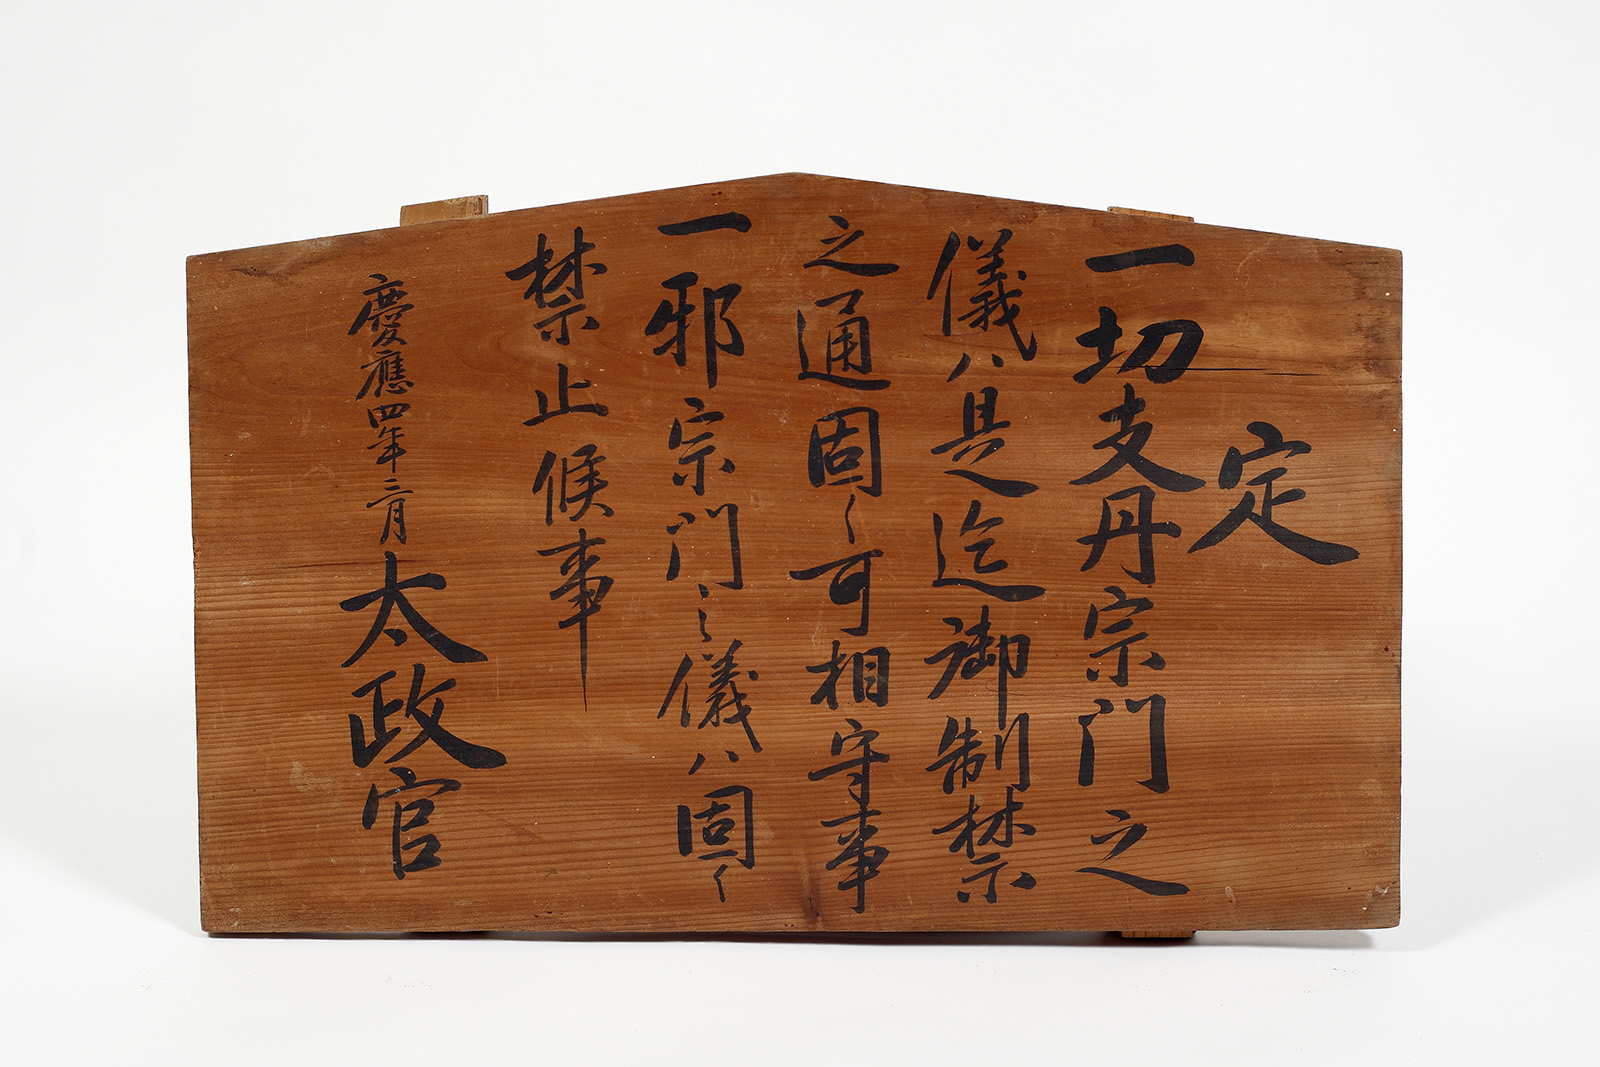 定
一切支丹宗門之
儀ハ是迄御制禁
之通固く可相守事
一邪宗門之儀ハ固く
禁止候事
慶應四年三月 太政官